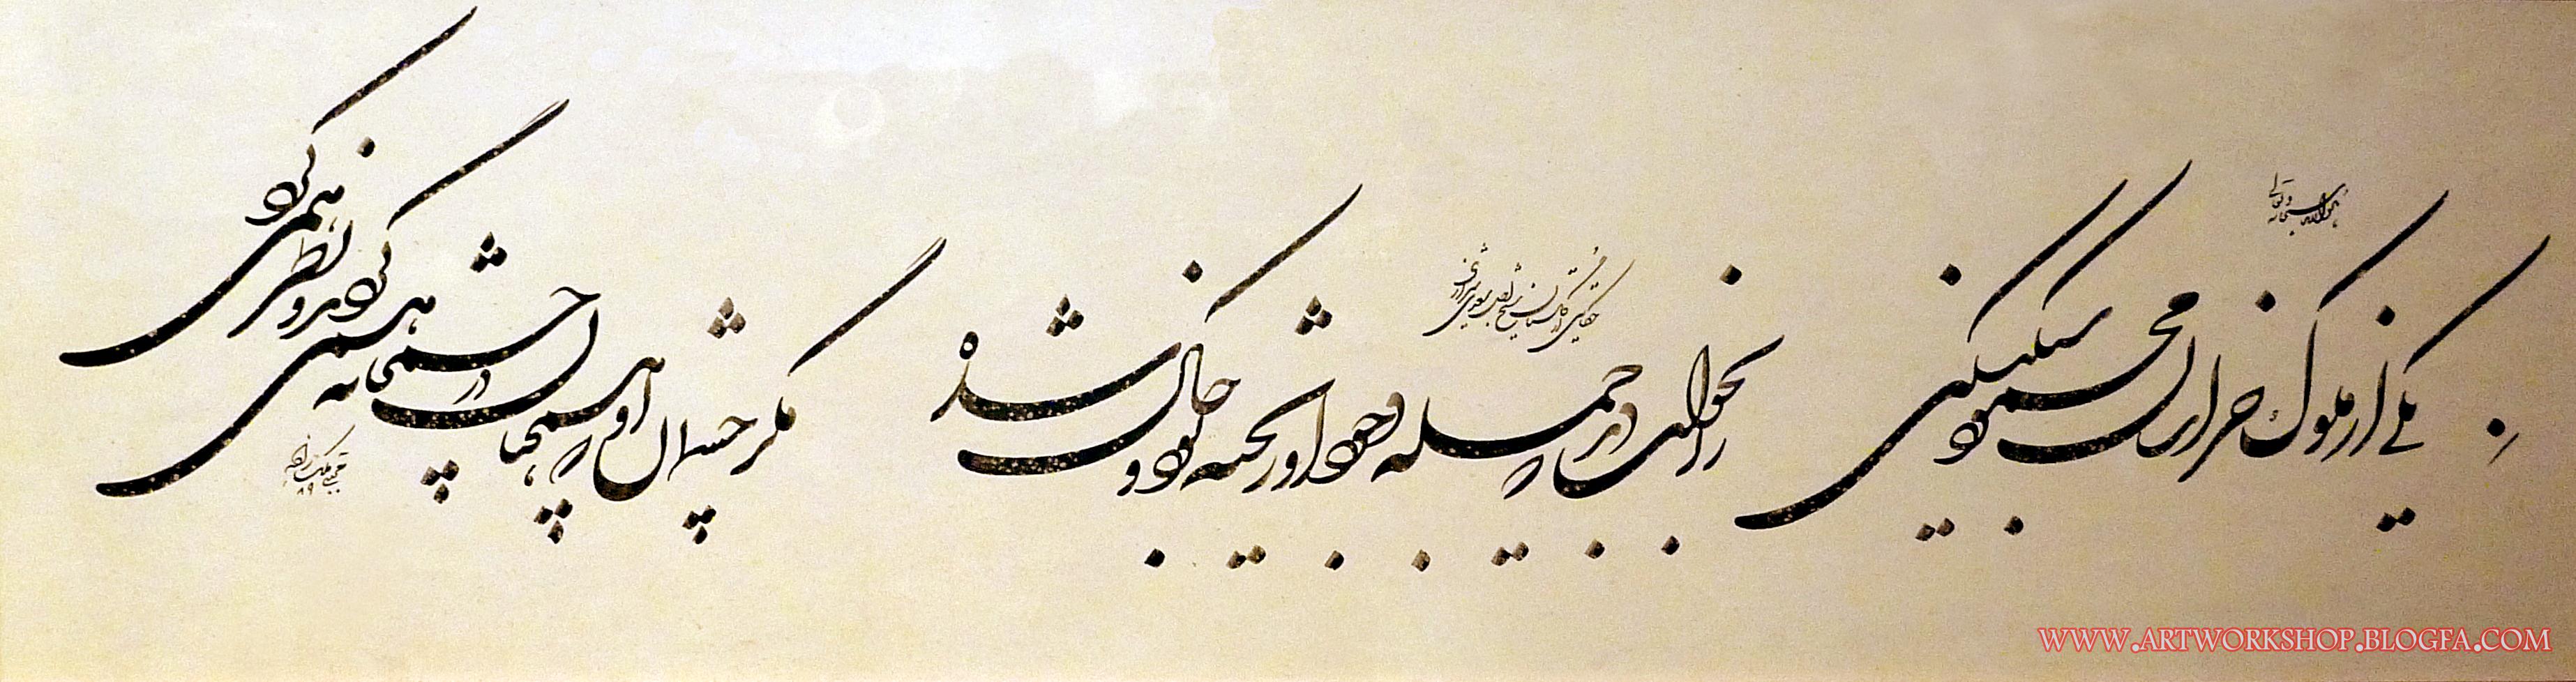 هوالله سبحانه و تعالی
یکی از ملوک خراسان محمود سبکتکین
حکایتی از گلستان شیخ اجل سعدی شیرازی
را بخواب دید که جمله وجود او ریخته بود و خاک شده
مگر چشمان او که همچنان در چشمخانه همی گردید و نظر همی کرد
۸۹
WWW.ARTWORKSHOP.BLOGFA.COM